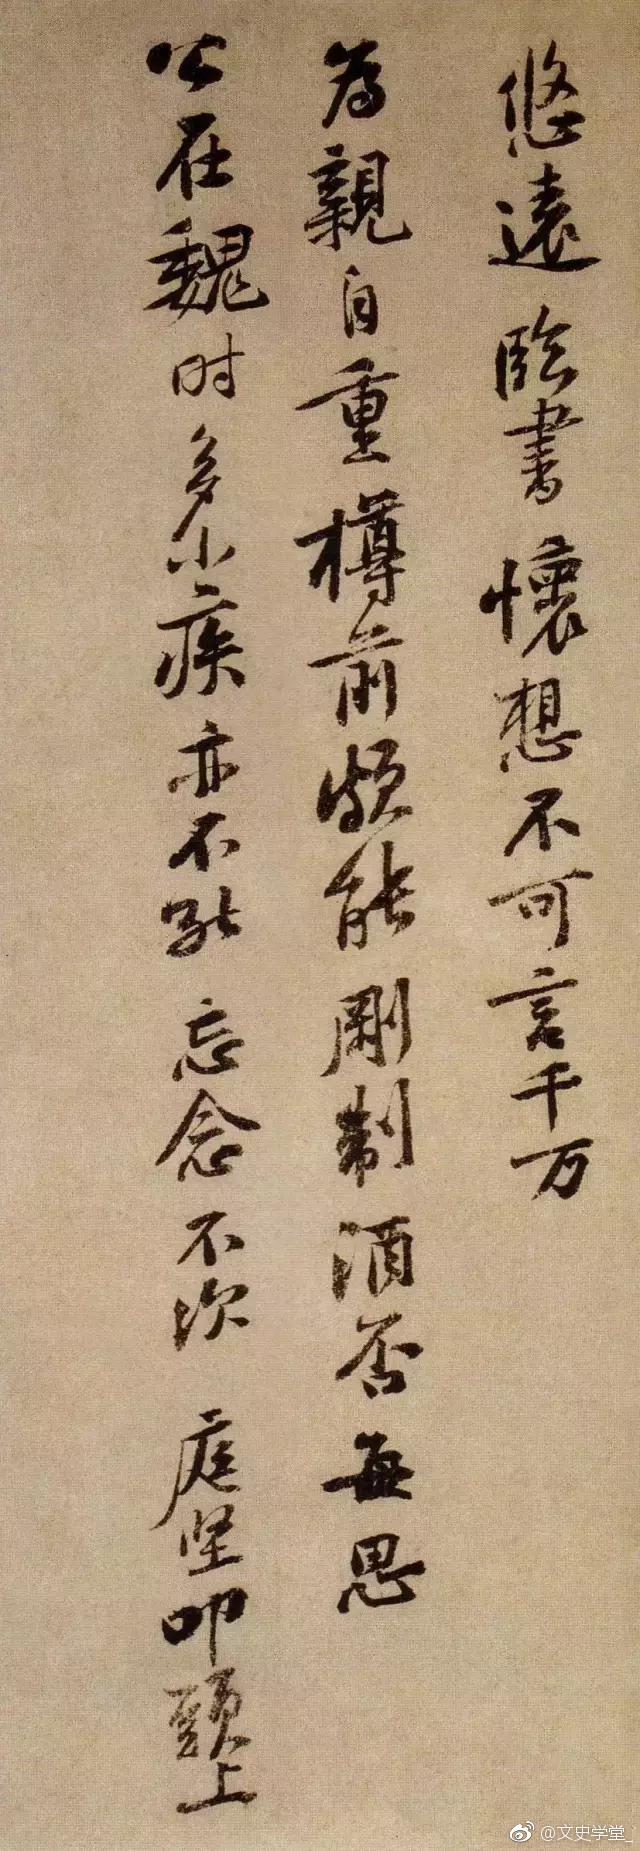 悠遠臨書懷想不可言千万
為親自重樽前頗能剛制酒否每思
公在魏时多小疾亦不能忘念不次庭坚叩頭上
@文史学堂_